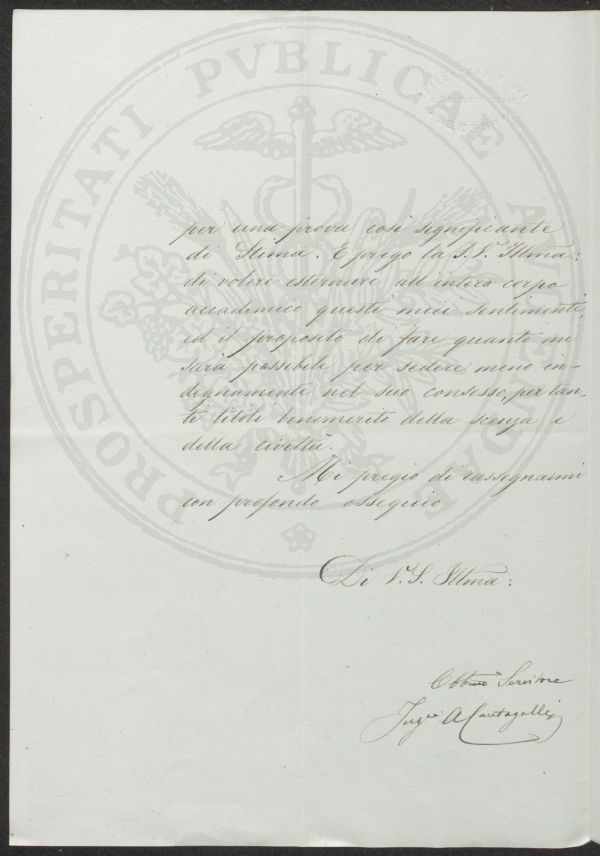 PROSPERITATI PVBLICAE AVGENDAE
per una prova così significante
di Stima. E prego la S. V. Illma:
di volere esternare all'intero corpo
accademico questi miei sentimenti
ed il proposito di fare quanto mi
sarà possibile per sedere meno in-
degnamente nel suo consesso, per tan-
ti titoli benemerito della scienza e
della civiltà.
Mi pregio di rassegnarmi
con profondo ossequio
Di V. S. Illma:
Obbmo Servitore
Ingre A Cantagalli